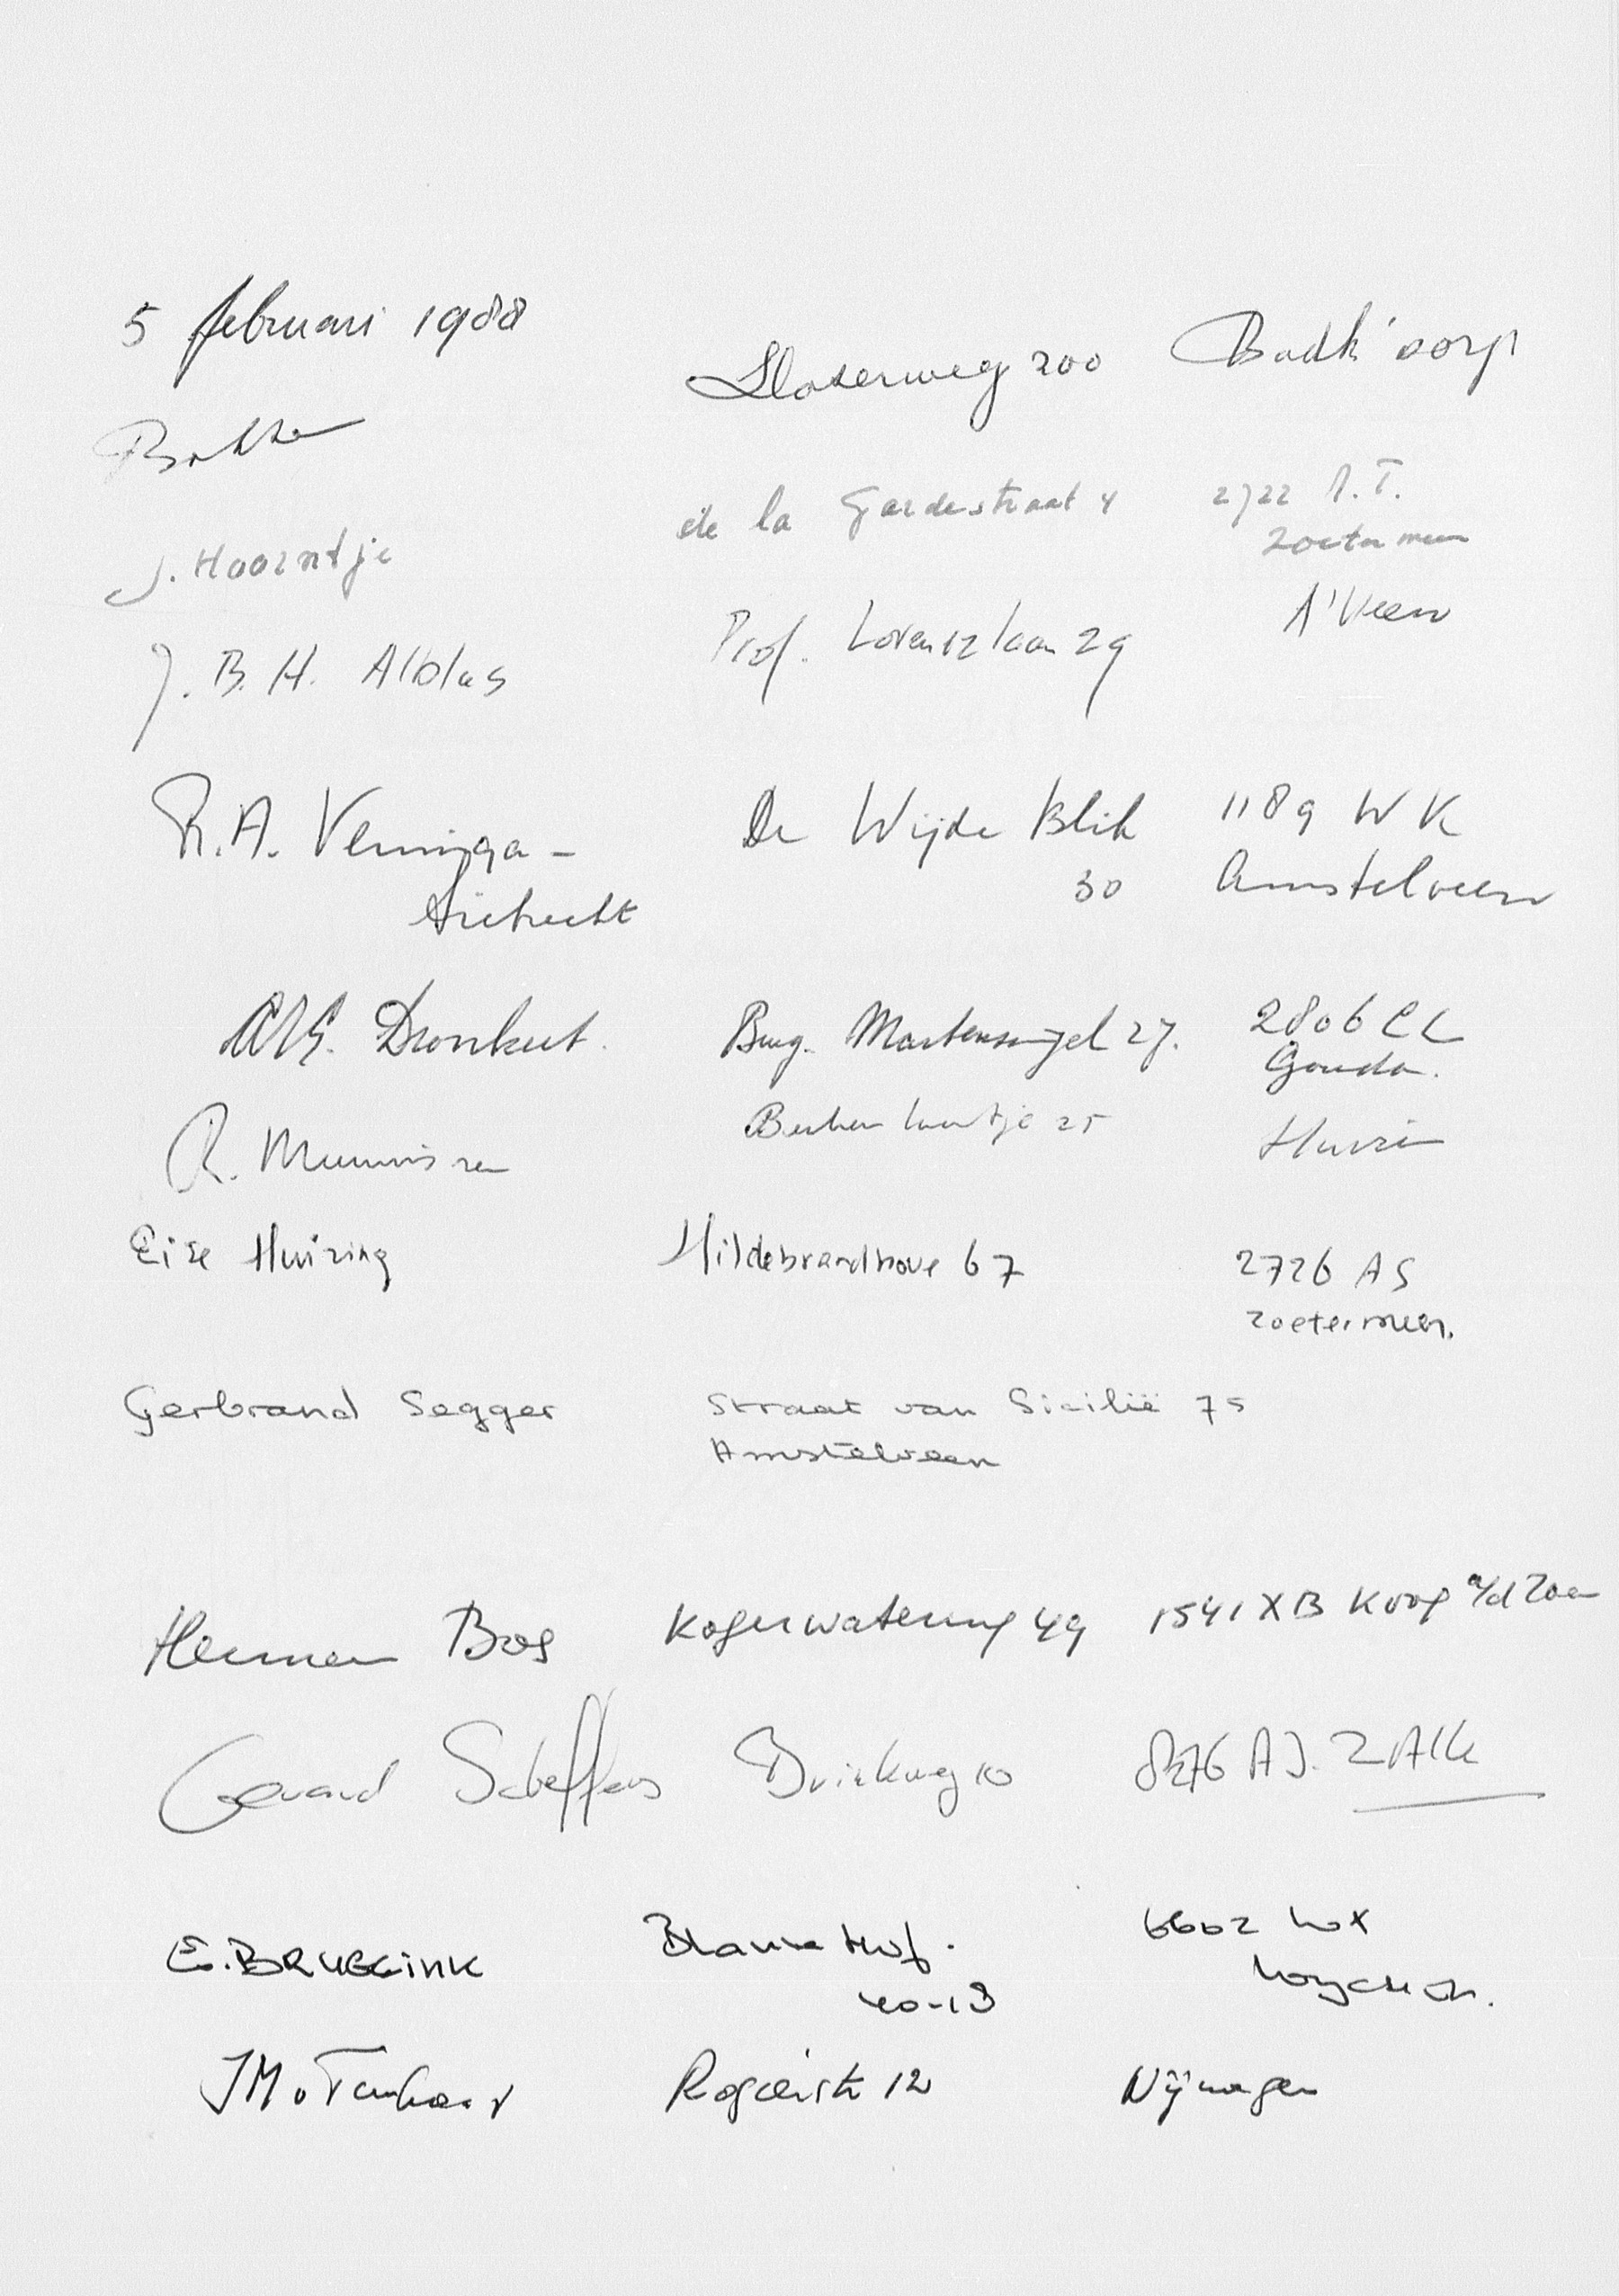 5 februari 1988
Bakker Sloterweg 200 Badh'dorp
J. Hoorntje de la Gardestraat 4 2722 A.T.
Zoetermeer
J. B. H. Alblas Prof. Lorentzlaan 29 A'Veen
R.A. Veninga - De Wijde Blik 1189 WK
30 Amstelveen
Dronkert. Burg. Martenssingel 27. 2806 CL
Gouda.
R. 25 Huizen
Eise Huizing Hildebrandhove 67 2726 AS
Zoetermeer.
Gerbrand Segger Straat van Sicilië 75
Amstelveen
Herman Bos Kogerwatering 49 1541 XB Koog a/d Zaan
Gerard Scheffers 10 8276 AJ. ZALK
E. BRUGGINK Blauwe Hof. 6602 WX
40-13 Wychen.
JM v 12 Nijmegen